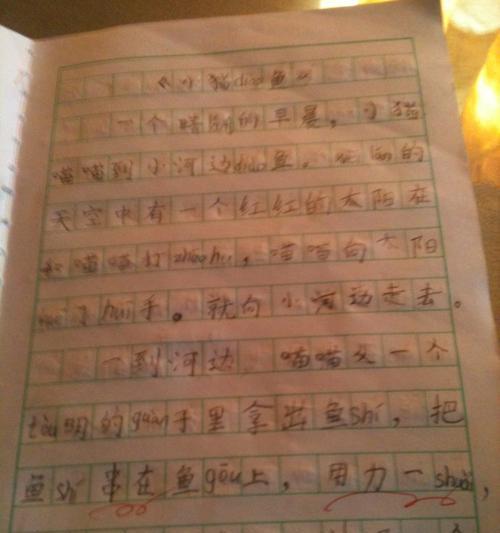 《小猫diào鱼》
一个晴朗的早晨，小猫
喵喵到小河边diào鱼。蓝的
天空中有一个红红的太阳在
和喵喵打zhāohu，喵喵向太阳
了huī手。就向小河边走去。
一到河边 喵喵从一个
tòu明的guàn子里拿出鱼shí，把
鱼shí串在鱼gōu上，用力一shuǎi，